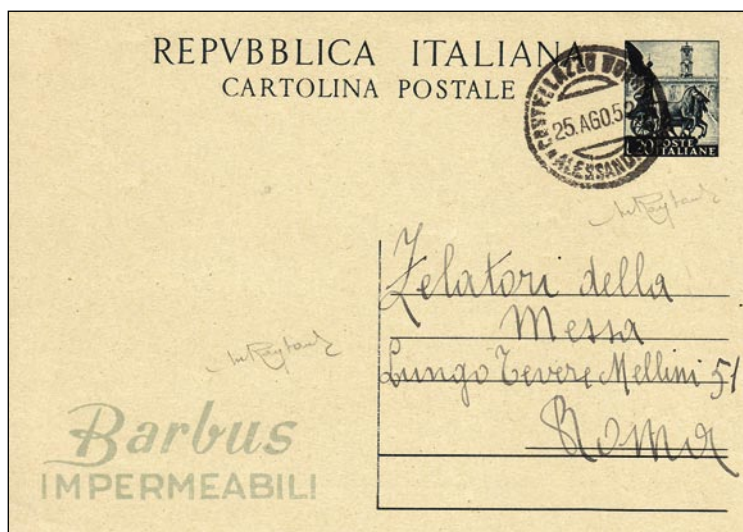 REPVBBLICA ITALIANA
CARTOLINA POSTALE
CASTELLAZZO
25.AGO.52
ALESSAND
L.20 POSTE
ITALIANE
Zelatori della
Messa
Lungo Tevere Mellini 51
Roma
Barbus
IMPERMEABILI